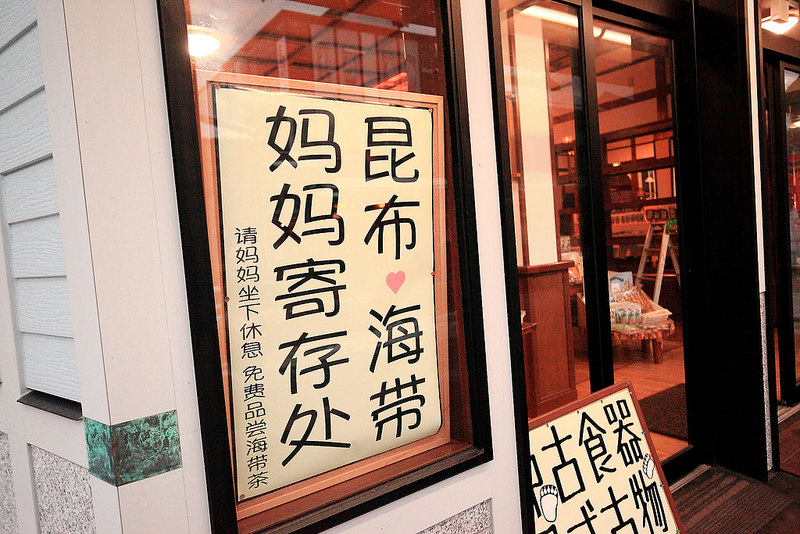 昆布♥海带
妈妈寄存处
请妈妈坐下休息 免费品尝海带茶
古食器
古物